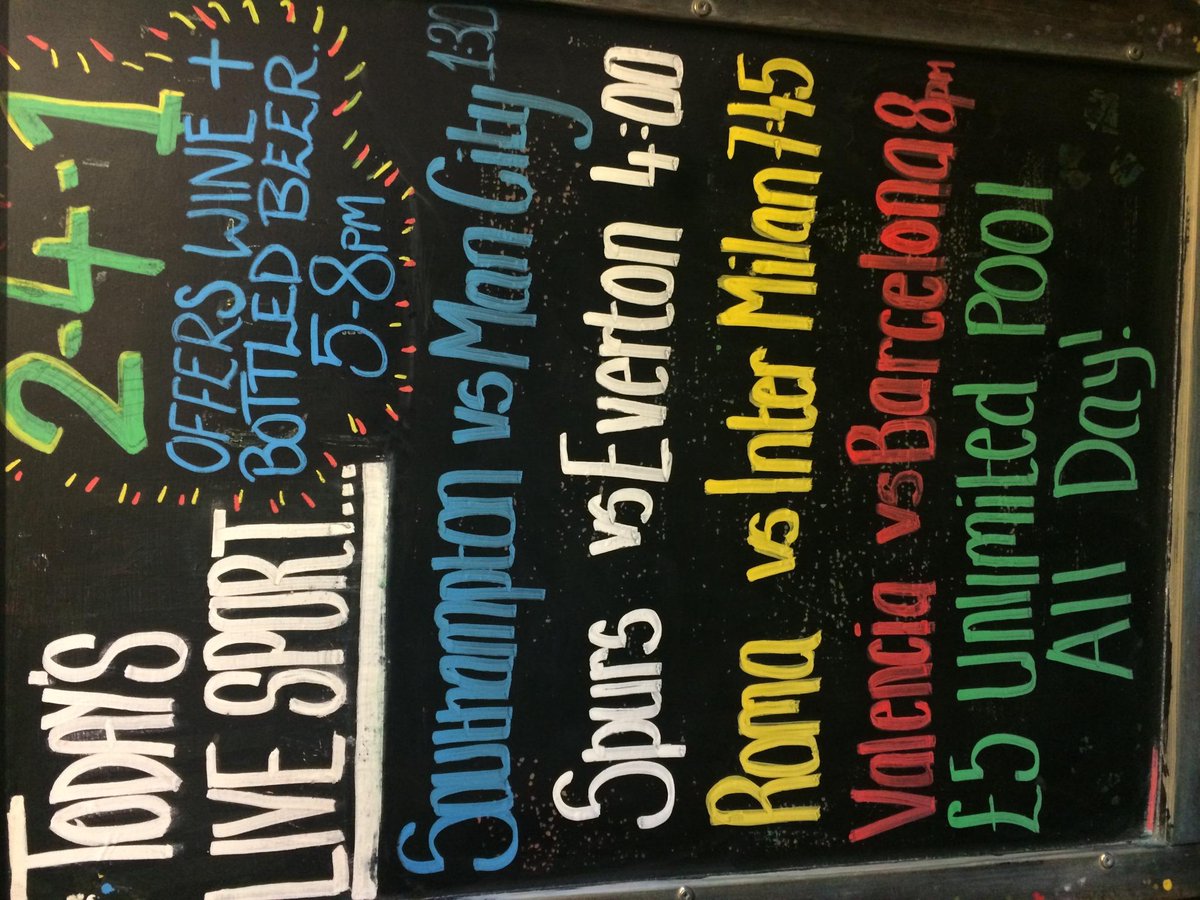 TODAY'S
LIVE SPORT...
2-4-1
OFFERS WINE +
BOTTLED BEER.
5-8PM
Southampton vs Man City 1:30
Spurs vs Everton 4:00
Roma vs Inter Milan 7:45
Valencia vs Barcelona 8pm
£5 Unlimited Pool
All Day!